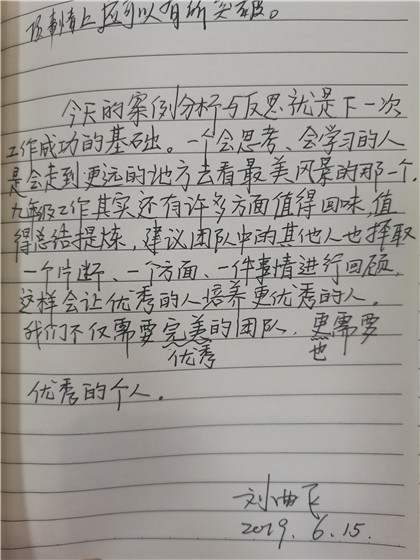 件事情上应可以有所突破。
今天的案例分析与反思就是下一次
工作成功的基础。一个会思考、会学习的人
是会走到更远的地方去看最美风景的那一个.
九年级工作其实还有许多方面值得回味,值
得总结提炼,建议团队中的其他人也择取
一个片断、一个方面、一件事情进行回顾,
这样会让优秀的人培养更优秀的人.
我们不仅需要完美的团队,更需要
优秀 也
优秀的个人.
刘曲飞
2019.6.15.